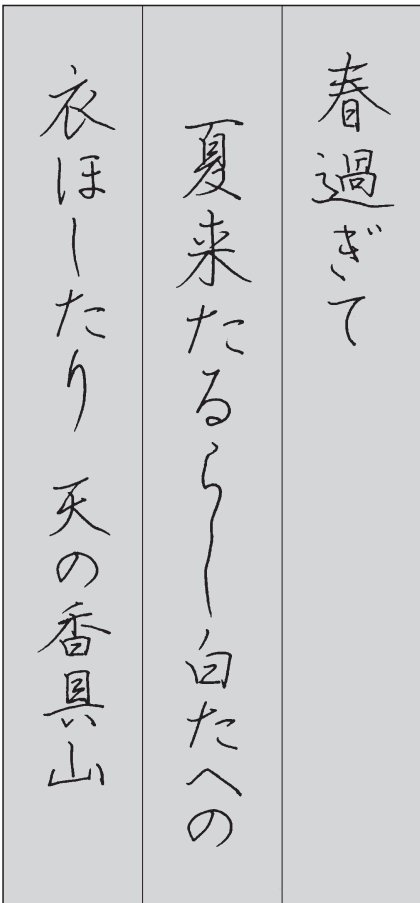 春過ぎて
夏来たるらし白たへの
衣ほしたり 天の香具山